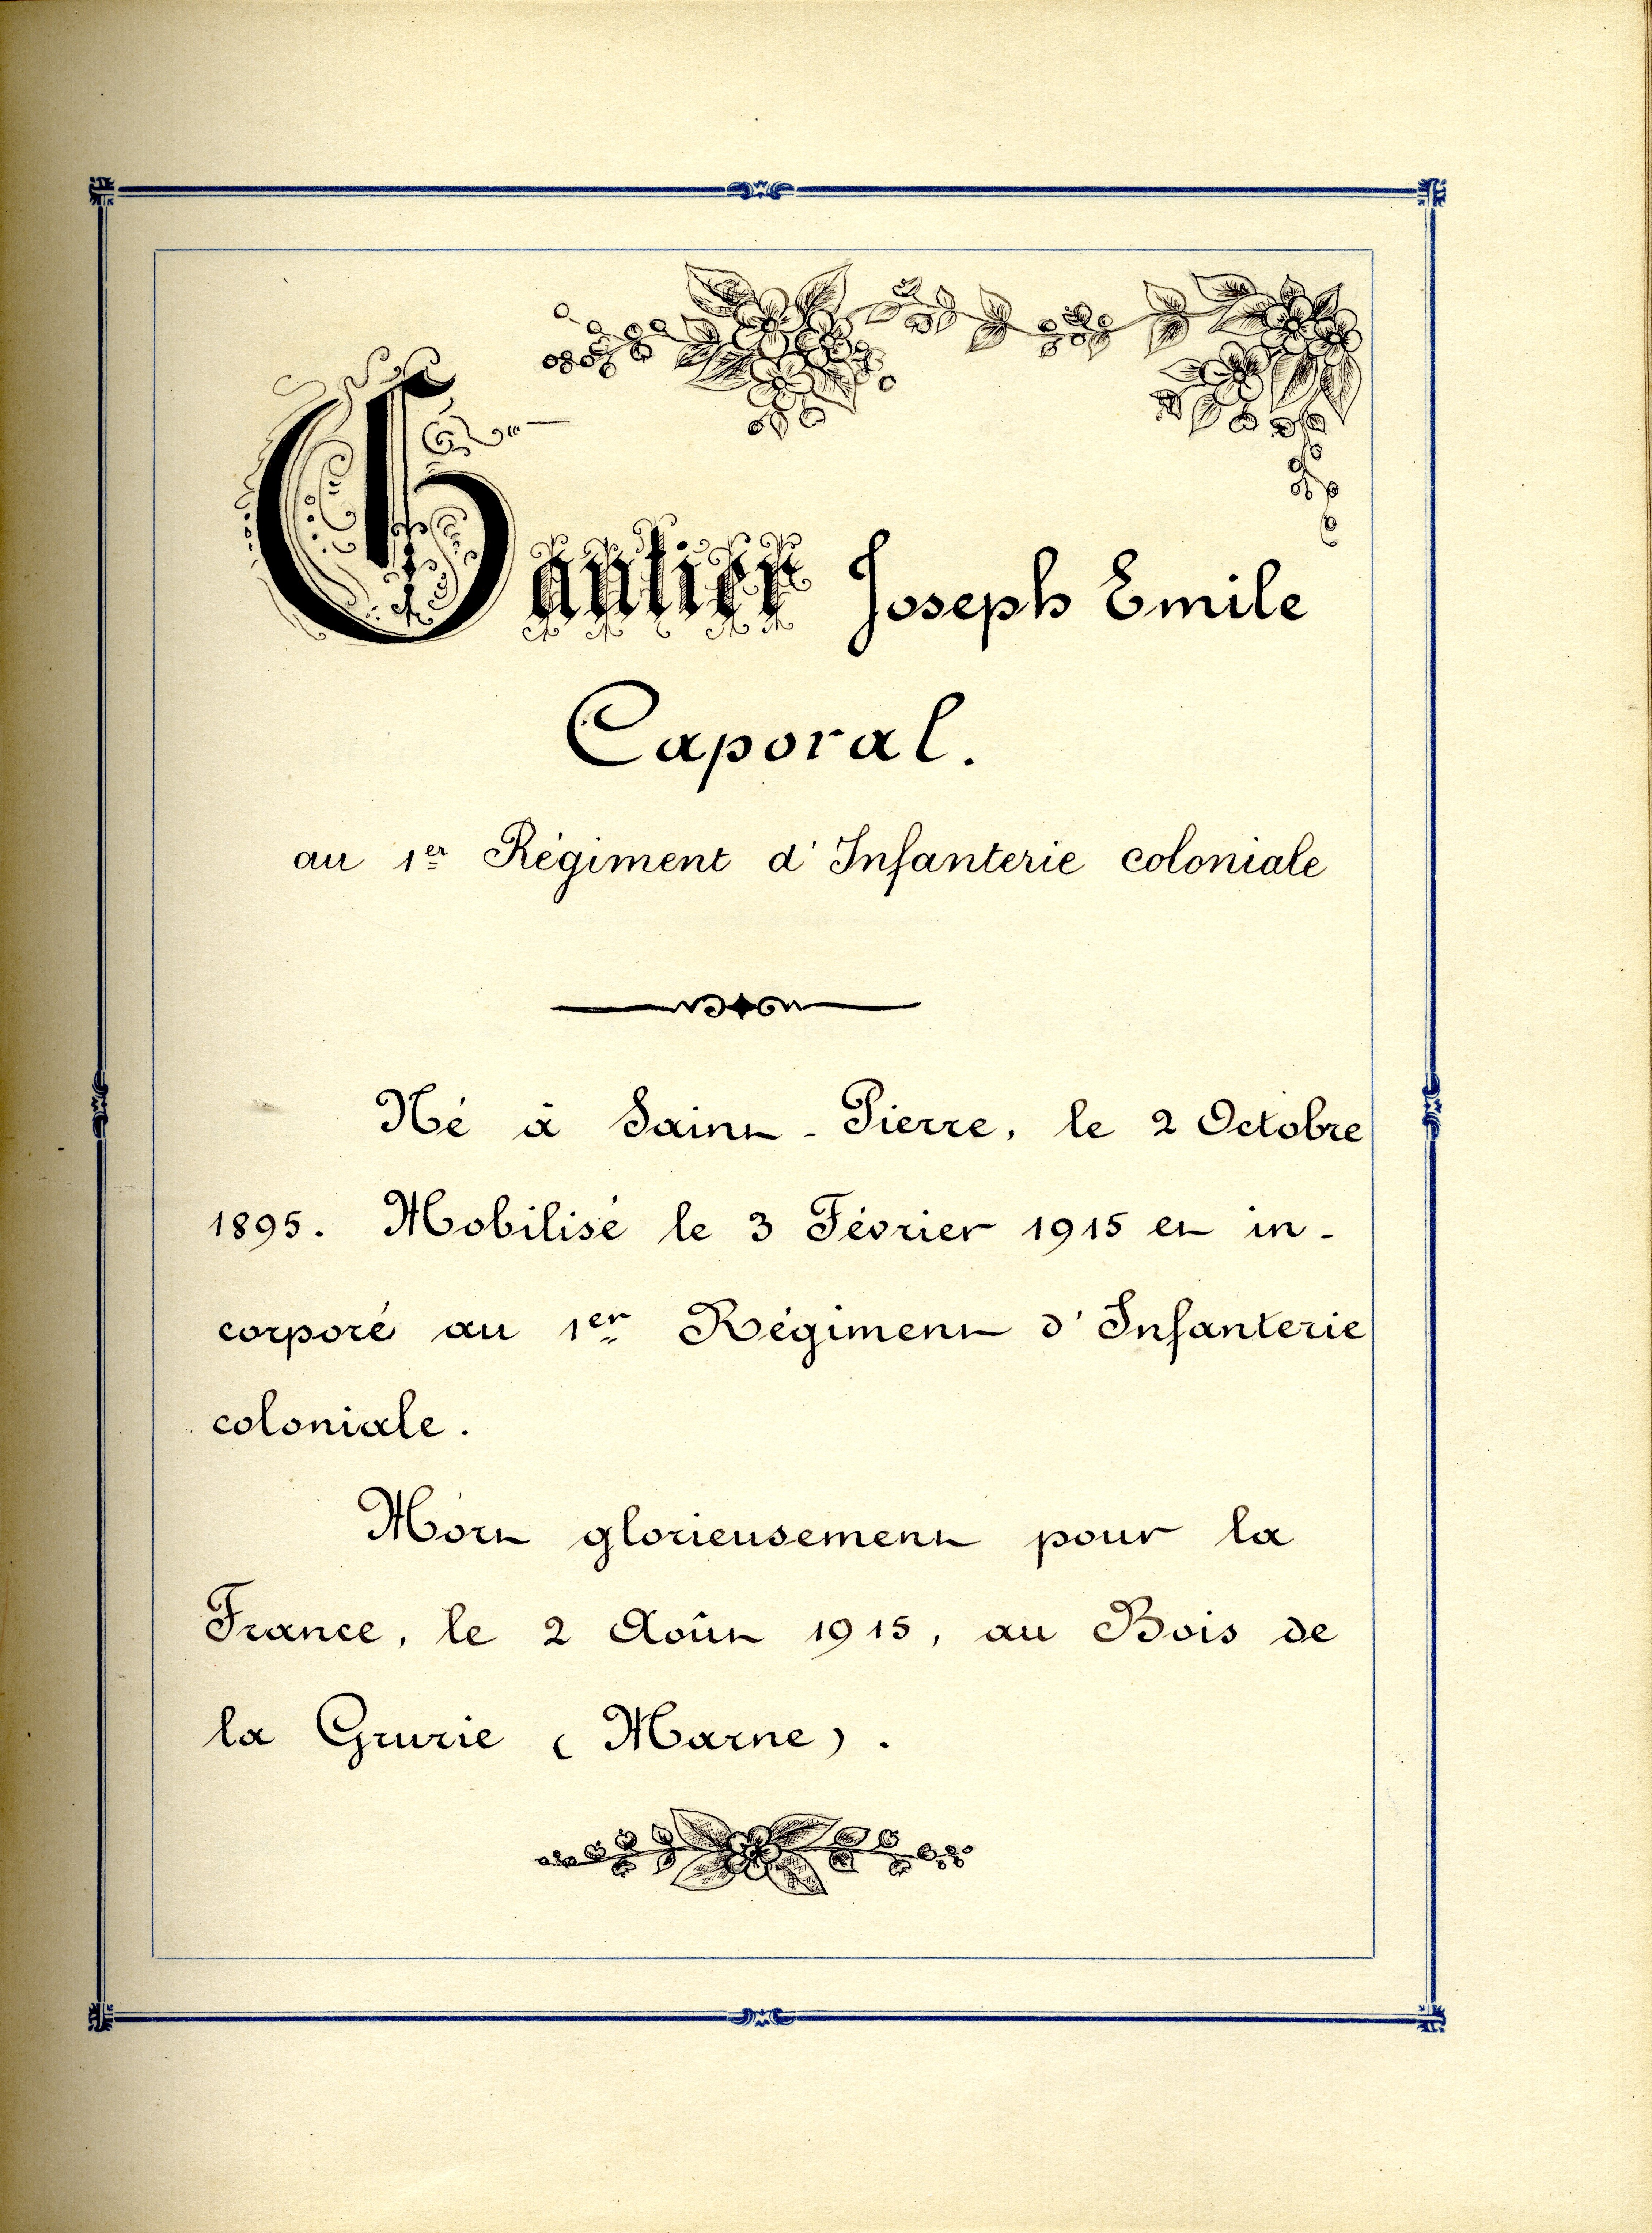 Gautier Joseph Emile
Caporal.
au 1er Régiment d'Infanterie coloniale
Né à Saint-Pierre, le 2 Octobre
1895. Mobilisé le 3 Février 1915 et in-
corporé au 1er Régiment d'Infanterie
coloniale.
Mort glorieusement pour la
France, le 2 Août 1915, au Bois de
la Grurie (Marne).